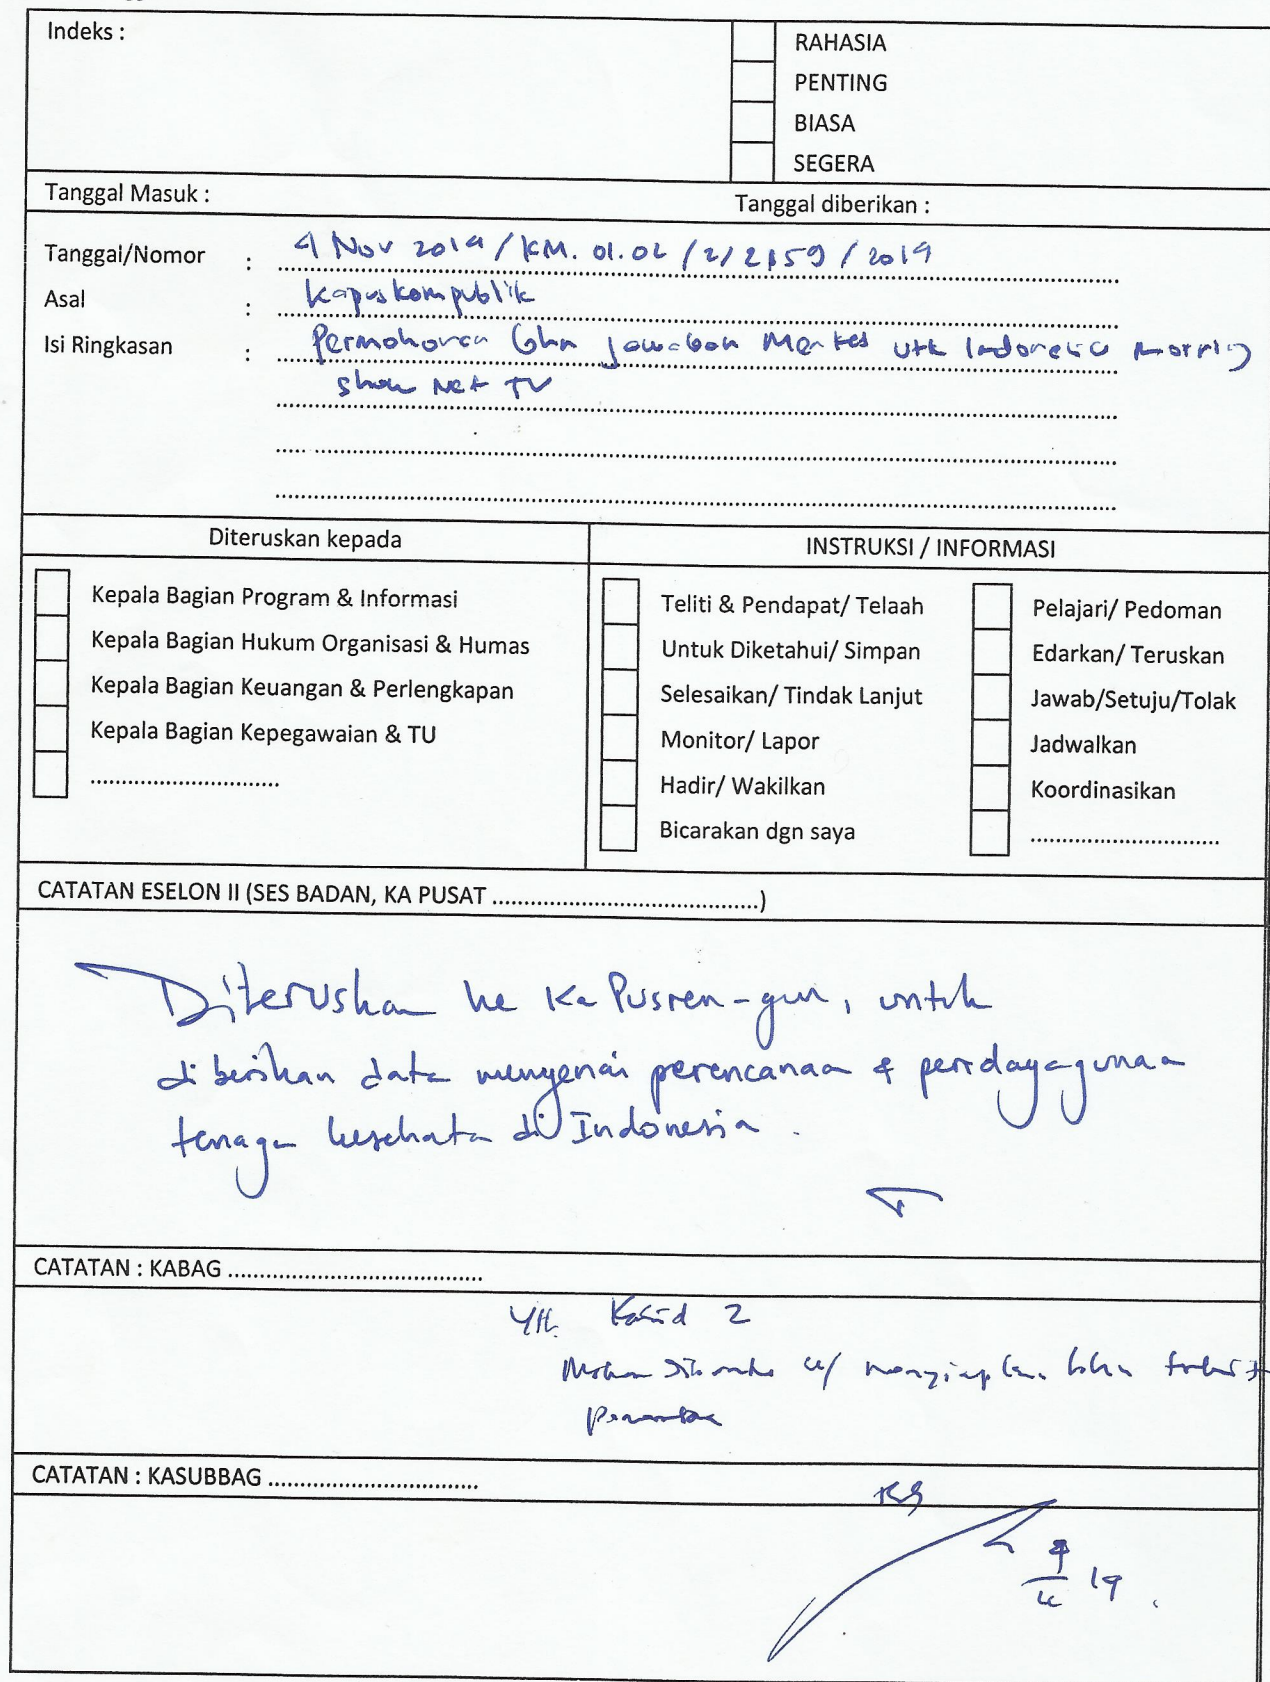 Indeks :
RAHASIA
PENTING
BIASA
SEGERA
Tanggal Masuk :
Tanggal diberikan :
Tanggal/Nomor : 4 Nov 2019 / KM. 01.02 /2/ 2159 / 2019
Asal : Kapuskompublik
Isi Ringkasan : Permohonan bhn jawaban Menkes utk Indonesia morning
show Net TV
Diteruskan kepada
INSTRUKSI / INFORMASI
Kepala Bagian Program & Informasi
Kepala Bagian Hukum Organisasi & Humas
Kepala Bagian Keuangan & Perlengkapan
Kepala Bagian Kepegawaian & TU
..............................
Teliti & Pendapat/ Telaah
Untuk Diketahui/ Simpan
Selesaikan/ Tindak Lanjut
Monitor/ Lapor
Hadir/ Wakilkan
Bicarakan dgn saya
Pelajari/ Pedoman
Edarkan/ Teruskan
Jawab/Setuju/Tolak
Jadwalkan
Koordinasikan
..............................
CATATAN ESELON II (SES BADAN, KA PUSAT ..........................................)
Diteruskan ke Ka Pusren-gun, untuk
diberikan data mengenai perencanaan & pendayagunaan
tenaga kesehatan di Indonesia.
CATATAN : KABAG ........................................
Yth. Kabid 2
Mohon u/ menyiapkan bhn
CATATAN : KASUBBAG .................................
19